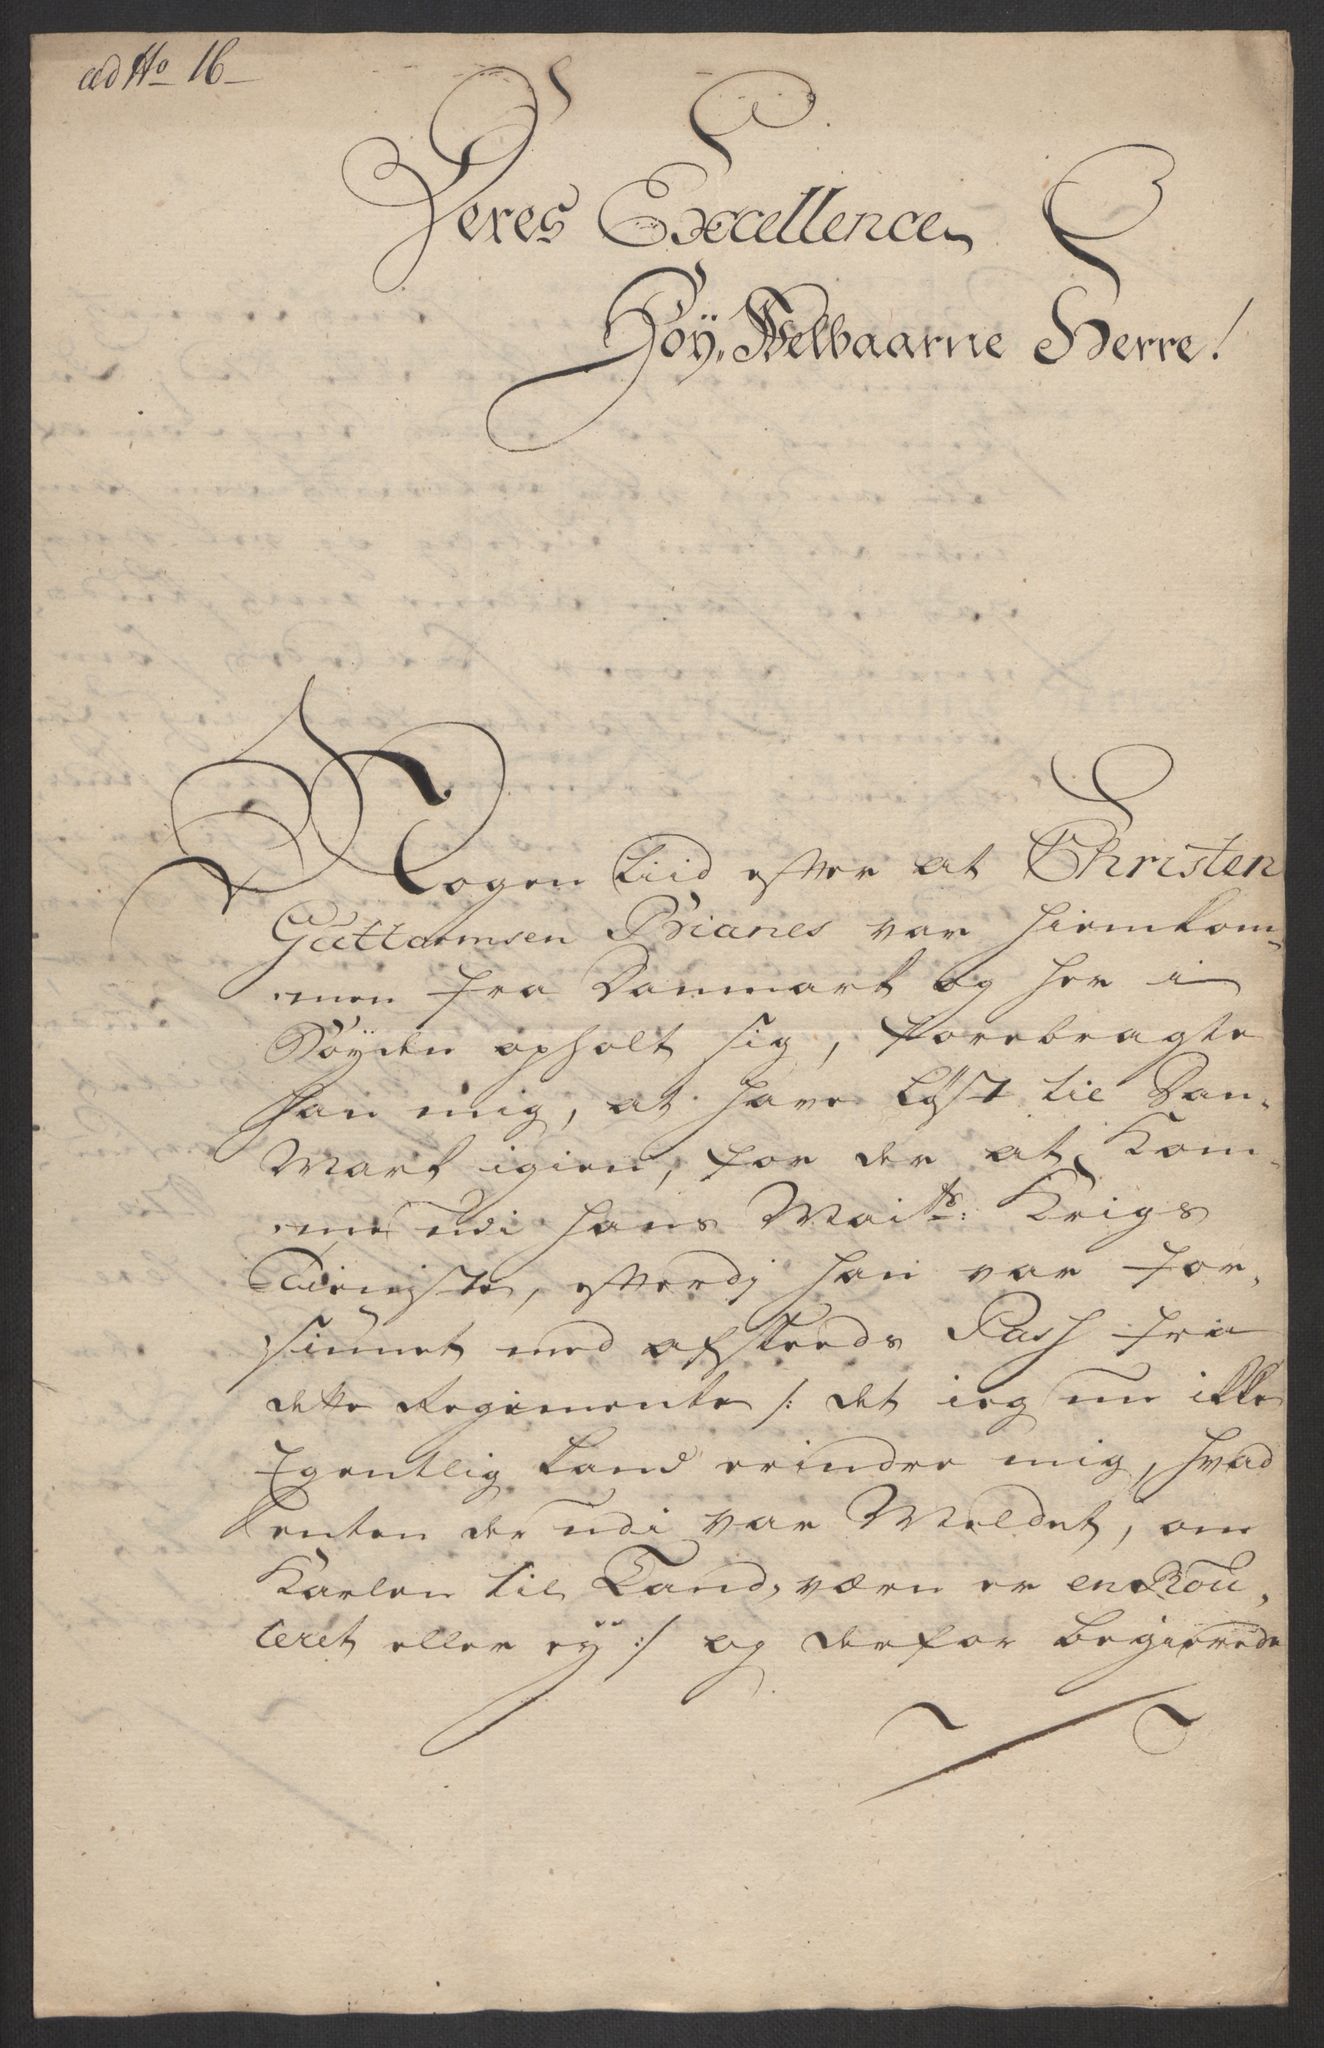 ad No 16
Deres Excellence
Höy, Welbaarne Herre!
Nogen tiid efter at Christen
Guttormsen Brianes var hiemkom-
men fra Danmark og her i
Böyden opholt sig, forebragte
han mig, at have Lyst til Dan-
Mark igien, for der at kom-
me udi hans Maits: Krigs
Tieniste, efterdj han var for-
siunet med afskeeds Pass fra
dette Regimente /: det ieg nu ikke
Egentlig kand erindre mig, hvad
enten der udi var Meldet, om
Karlen til Land-værn er en Rou-
leret eller ey :/ og derfor begierede